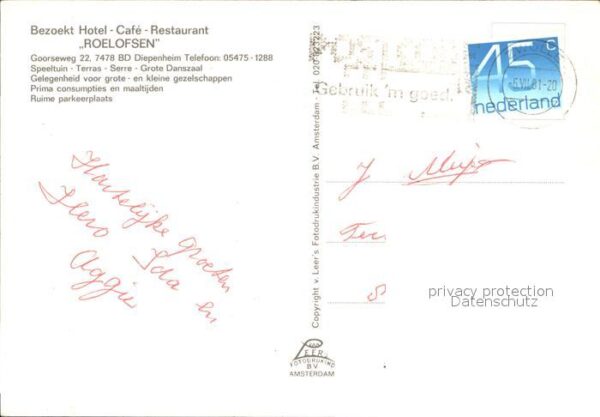 Bezoekt Hotel - Café - Restaurant
„ROELOFSEN”
Goorseweg 22, 7478 BD Diepenheim Telefoon: 05475-1288
Speeltuin - Terras - Serre - Grote Danszaal
Gelegenheid voor grote - en kleine gezelschappen
Prima consumpties en maaltijden
Ruime parkeerplaats
Hartelijke groeten
Hero Ida en
Aggie
Copyright v. Leer's Fotodrukindustrie B.V. Amsterdam - Tel. 020-823223
Gebruik 'm goed.
45 c
nederland
-6.VII.81-20
J Meijer
S
privacy protection
Datenschutz
VAN
LEER
FOTODRUKIND
BV
AMSTERDAM